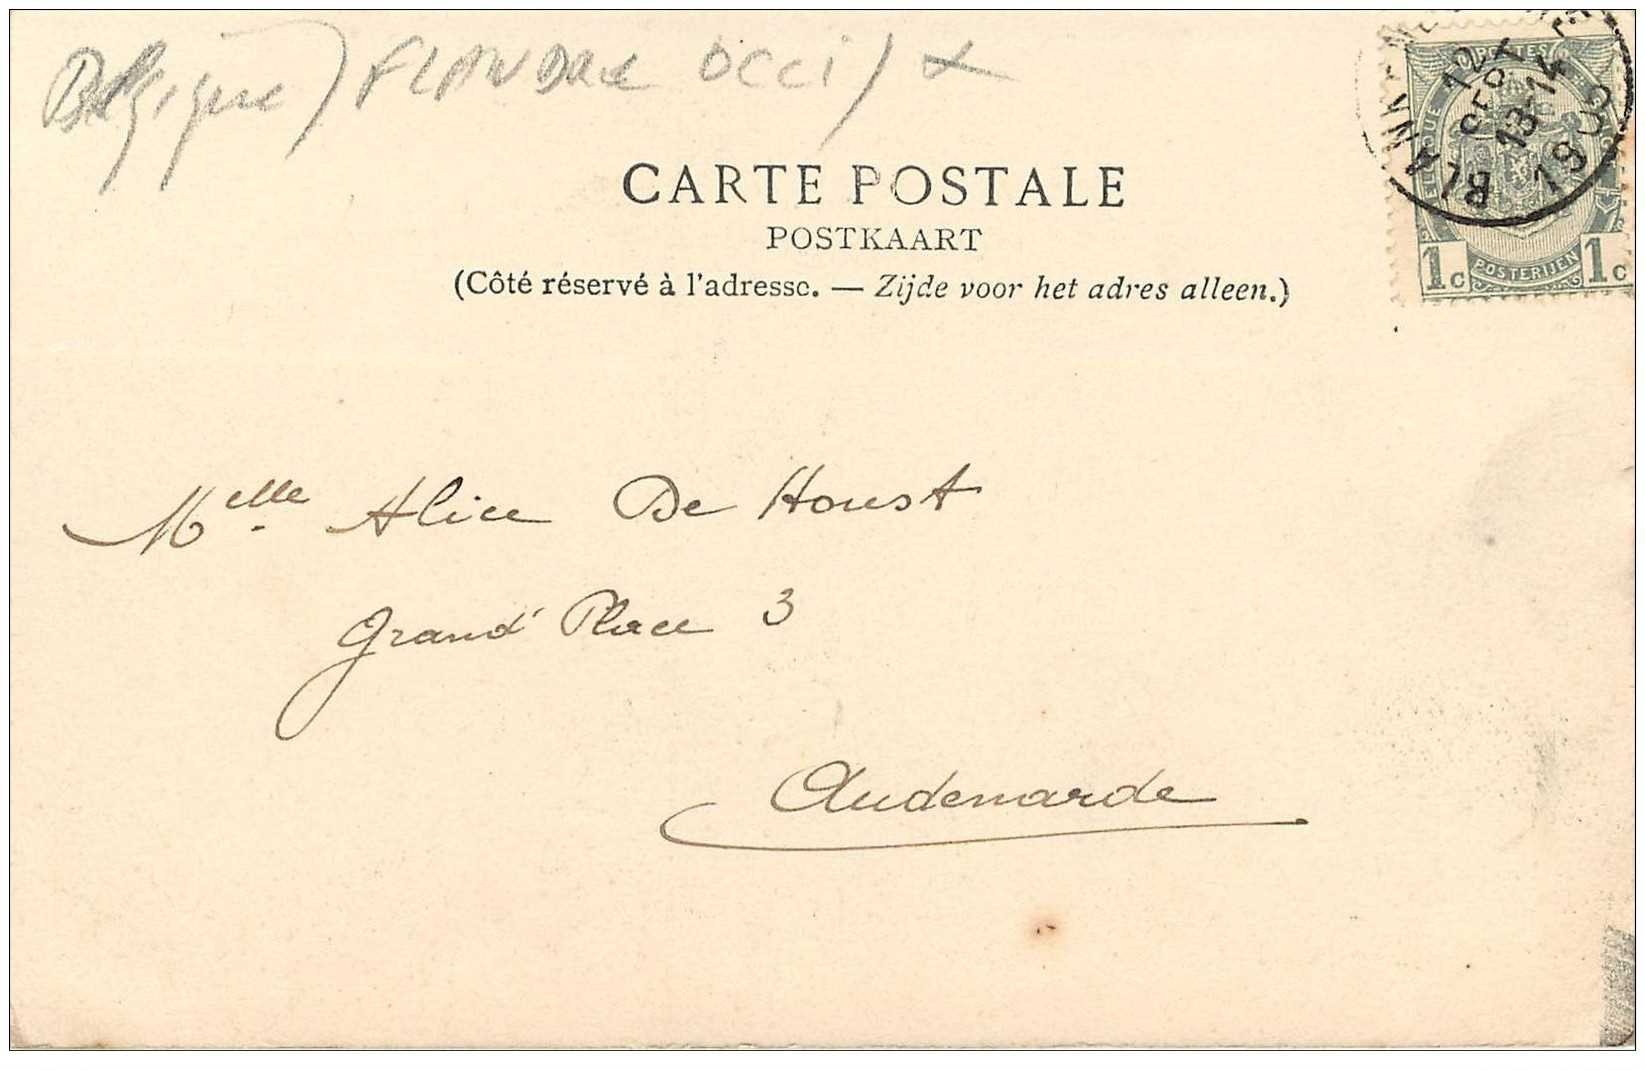 Belgique) FLANDRE OCCI)
CARTE POSTALE
POSTKAART
(Côté réservé à l'adresse. — Zijde voor het adres alleen.)
POSTES
1c POSTERIJEN 1c
12 SEPT
13-14
Melle Alice De Houst
Grand' Place 3
Audenarde